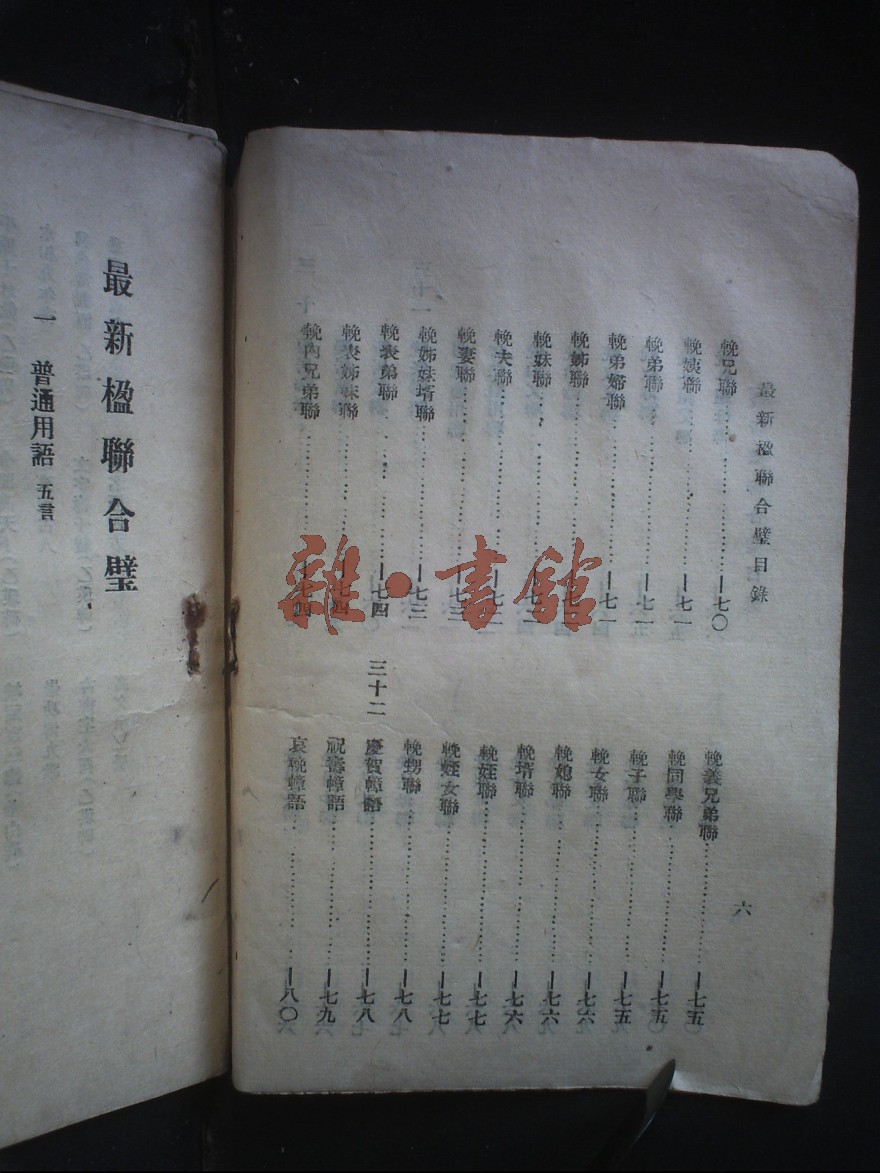 最新楹聯合璧目錄
六
輓兄聯……一七〇
輓嫂聯……一七一
輓弟聯……一七一
輓弟婦聯……一七一
輓姊聯……
輓妹聯……
輓夫聯……
輓妻聯……一七三
輓姊妹壻聯……一七三
輓表弟聯……一七四
輓表姊妹聯……一七四
輓內兄弟聯……一七四
輓義兄弟聯……一七五
輓同學聯……一七五
輓子聯……一七五
輓女聯……一七六
輓媳聯……一七六
輓壻聯……一七六
輓姪聯……一七七
輓姪女聯……一七七
輓甥聯……一七八
三十二
慶賀幛語……一七八
祝壽幛語……一七九
哀輓幛語……一八〇
最新楹聯合璧
一 普通用語 五言
雜·書館